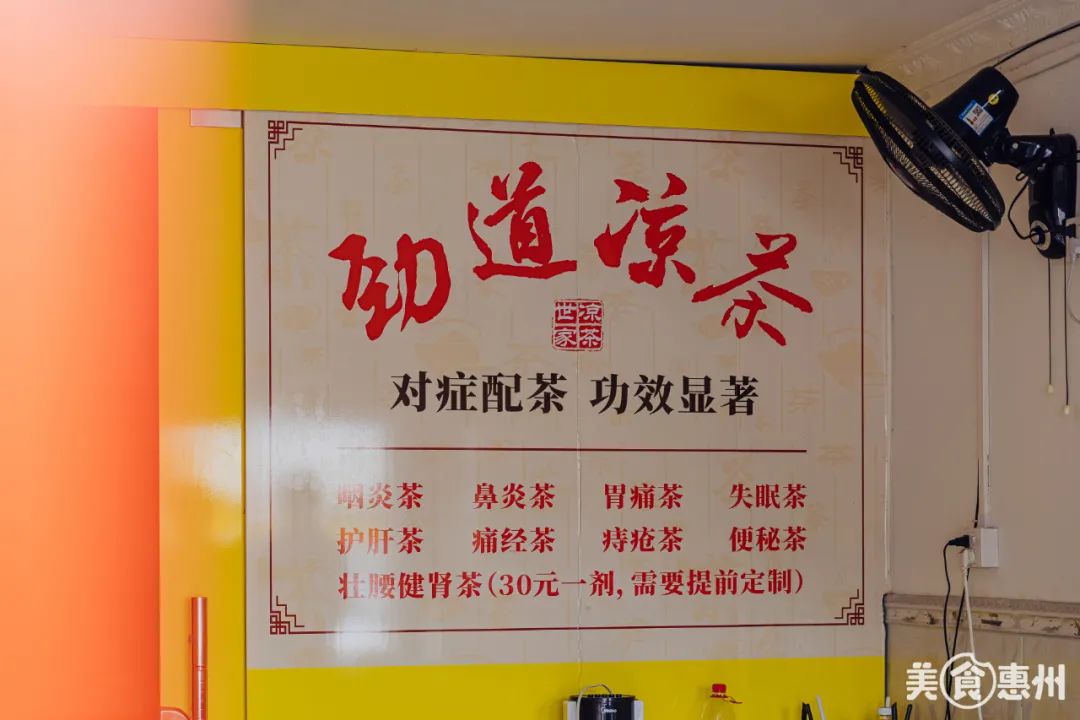 劲道凉茶
凉茶世家
对症配茶 功效显著
咽炎茶 鼻炎茶 胃痛茶 失眠茶
护肝茶 痛经茶 痔疮茶 便秘茶
壮腰健肾茶(30元一剂,需要提前定制)
美食惠州